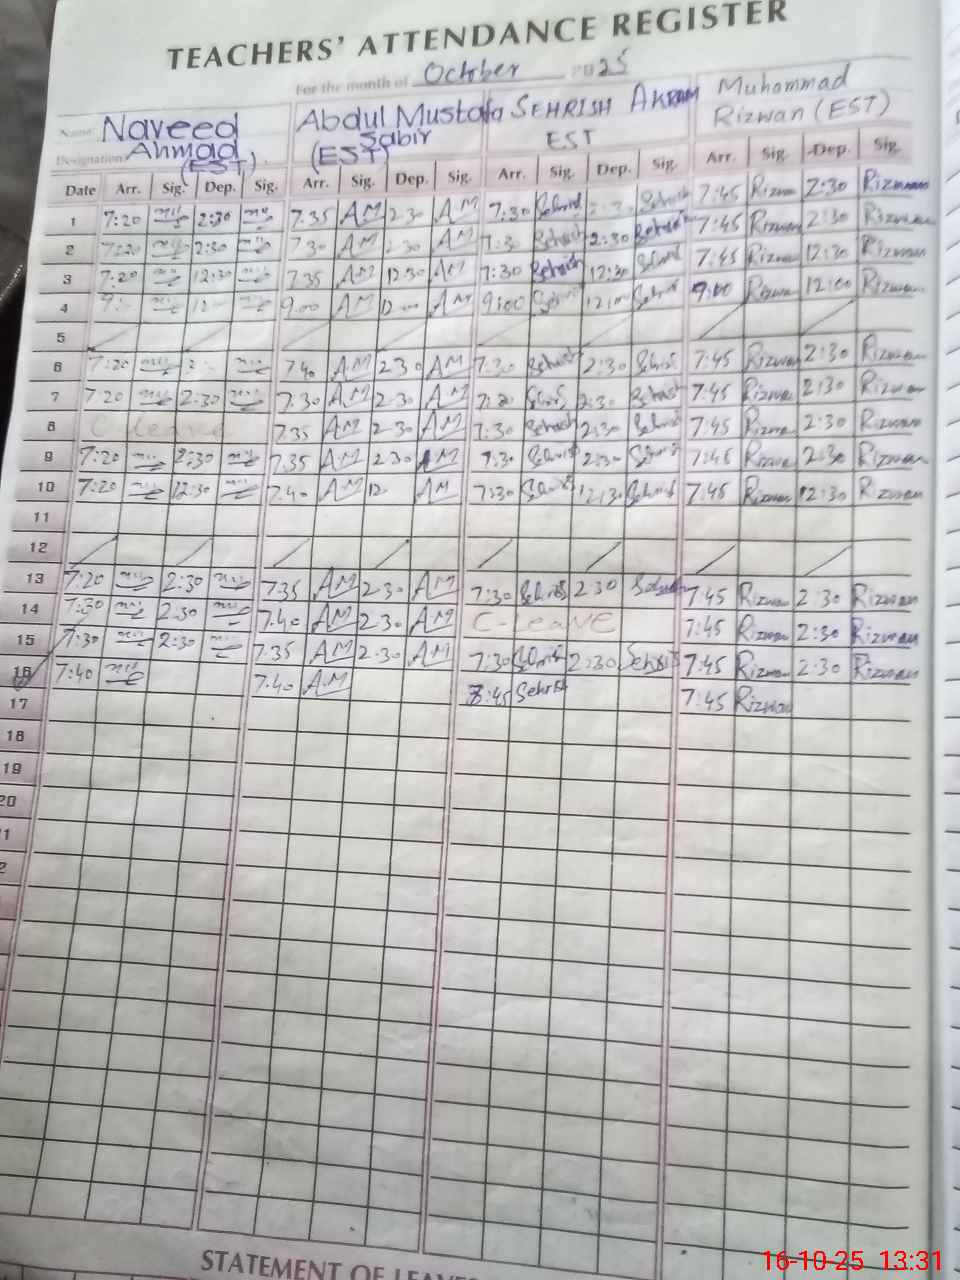 TEACHERS' ATTENDANCE REGISTER
For the month of October 2025
Name Naveed Ahmad (EST) Abdul Mustafa Sabir (EST) SEHRISH AKRAM EST Muhammad Rizwan (EST)
Designation
Date Arr. Sig. Dep. Sig. Arr. Sig. Dep. Sig. Arr. Sig. Dep. Sig. Arr. Sig. Dep. Sig.
1 7:20 2:30 7.35 AM 2.30 AM 7:30 Sehrish Sehrish 7:45 Rizwan 2:30 Rizwan
2 7:20 2:30 7.30 AM 2.30 AM 7:30 Sehrish 2:30 Sehrish 7:45 Rizwan 2:30 Rizwan
3 7:20 12:30 7.35 AM 12.30 AM 7:30 Sehrish 12:30 Sehrish 7:45 Rizwan 12:30 Rizwan
4 9.00 AM AM 9:00 Sehrish Sehrish 9:00 Rizwan 12:00 Rizwan
5
6 7:20 7.40 AM 2.30 AM 7:30 Sehrish 2:30 Sehrish 7:45 Rizwan 2:30 Rizwan
7 7:20 2:30 7.30 AM 2.30 AM Sehrish 2:30 Sehrish 7:45 Rizwan 2:30 Rizwan
8 C-leave 7.35 AM 2.30 AM 7:30 Sehrish 2:30 Sehrish 7:45 Rizwan 2:30 Rizwan
9 7:20 2:30 7.35 AM 2.30 AM 7:30 Sehrish 2:30 Sehrish 7:45 Rizwan 2:30 Rizwan
10 7:20 12:30 7.40 AM 12 AM 7:30 Sehrish 12:30 Sehrish 7:45 Rizwan 12:30 Rizwan
11
12
13 7:20 2:30 7.35 AM 2.30 AM 7:30 Sehrish 2:30 Sehrish 7:45 Rizwan 2:30 Rizwan
14 7:30 2:30 7.40 AM 2.30 AM C-Leave 7:45 Rizwan 2:30 Rizwan
15 7:30 2:30 7.35 AM 2.30 AM 7:30 Sehrish 2:30 Sehrish 7:45 Rizwan 2:30 Rizwan
16 7:40 7.40 AM 7:45 Sehrish 7:45 Rizwan
17
18
19
20
STATEMENT OF LEAVES
16-10-25 13:31